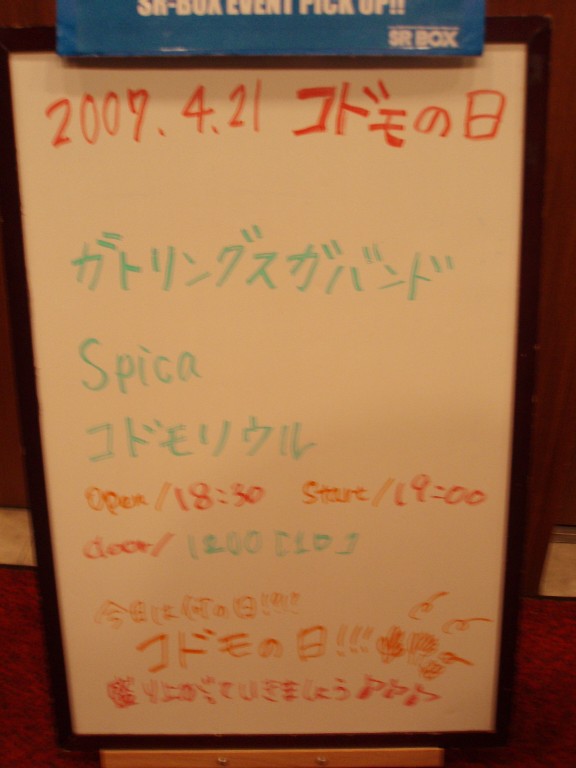 SR-BOX EVENT PICK UP!!
SR BOX
2007.4.21 コドモの日
ガトリングスガバンド
Spica
コドモソウル
open/18:30 start/19:00
door/ 1200「1D」
今日は何の日!!!!
コドモの日!!!
盛り上がっていきましょう♪♪♪